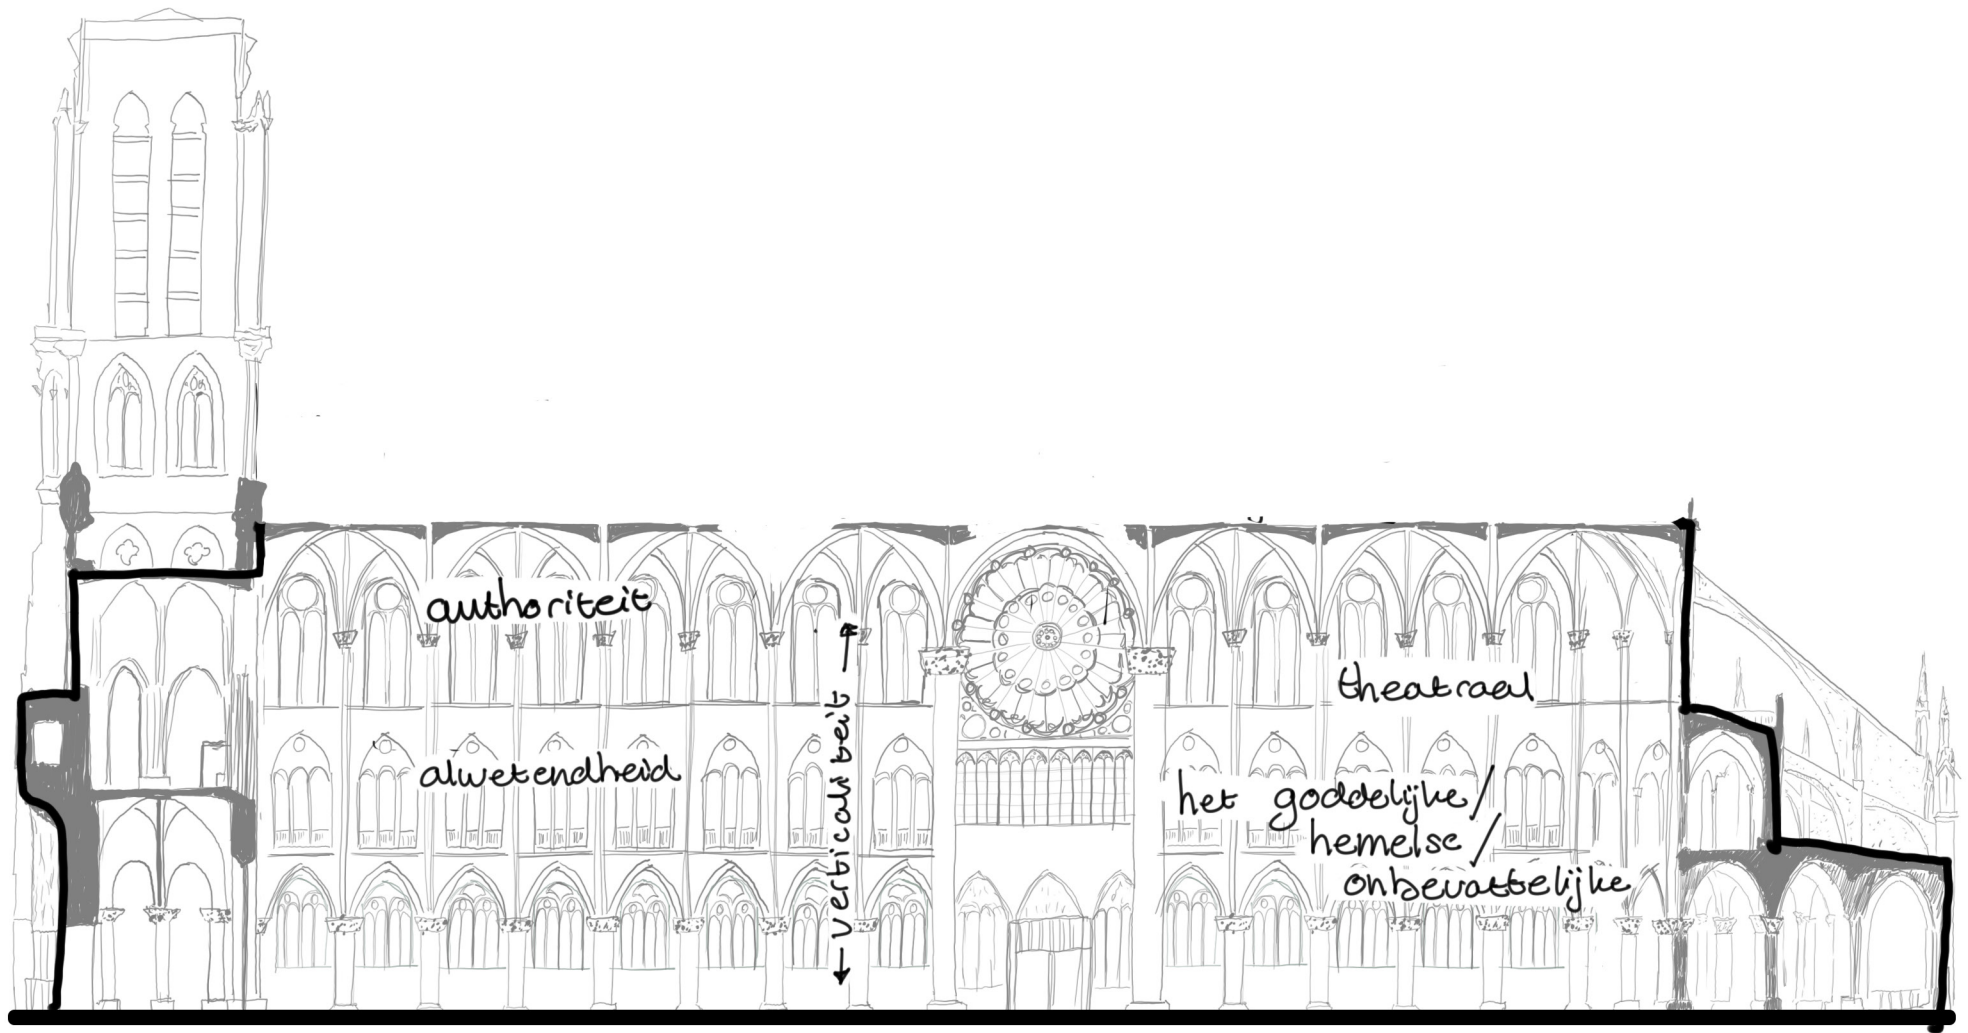 authoriteit
alwetendheid
← verticaliteit →
theatraal
het goddelijke/
hemelse/
onbevattelijke